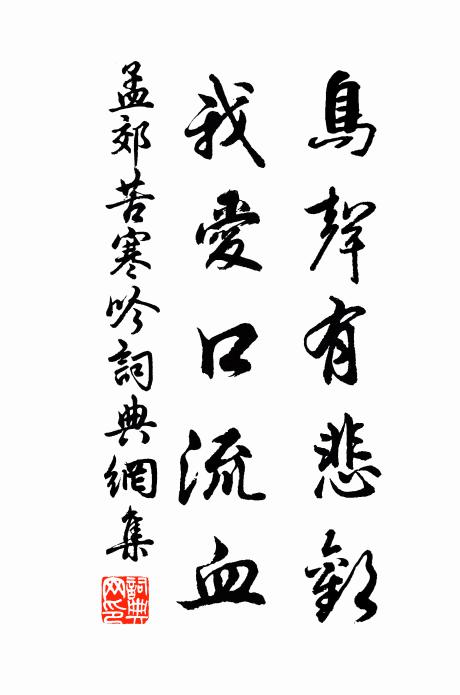 鳥聲有悲歡
我愛口流血
孟郊苦寒吟詞典網集
詞典网印